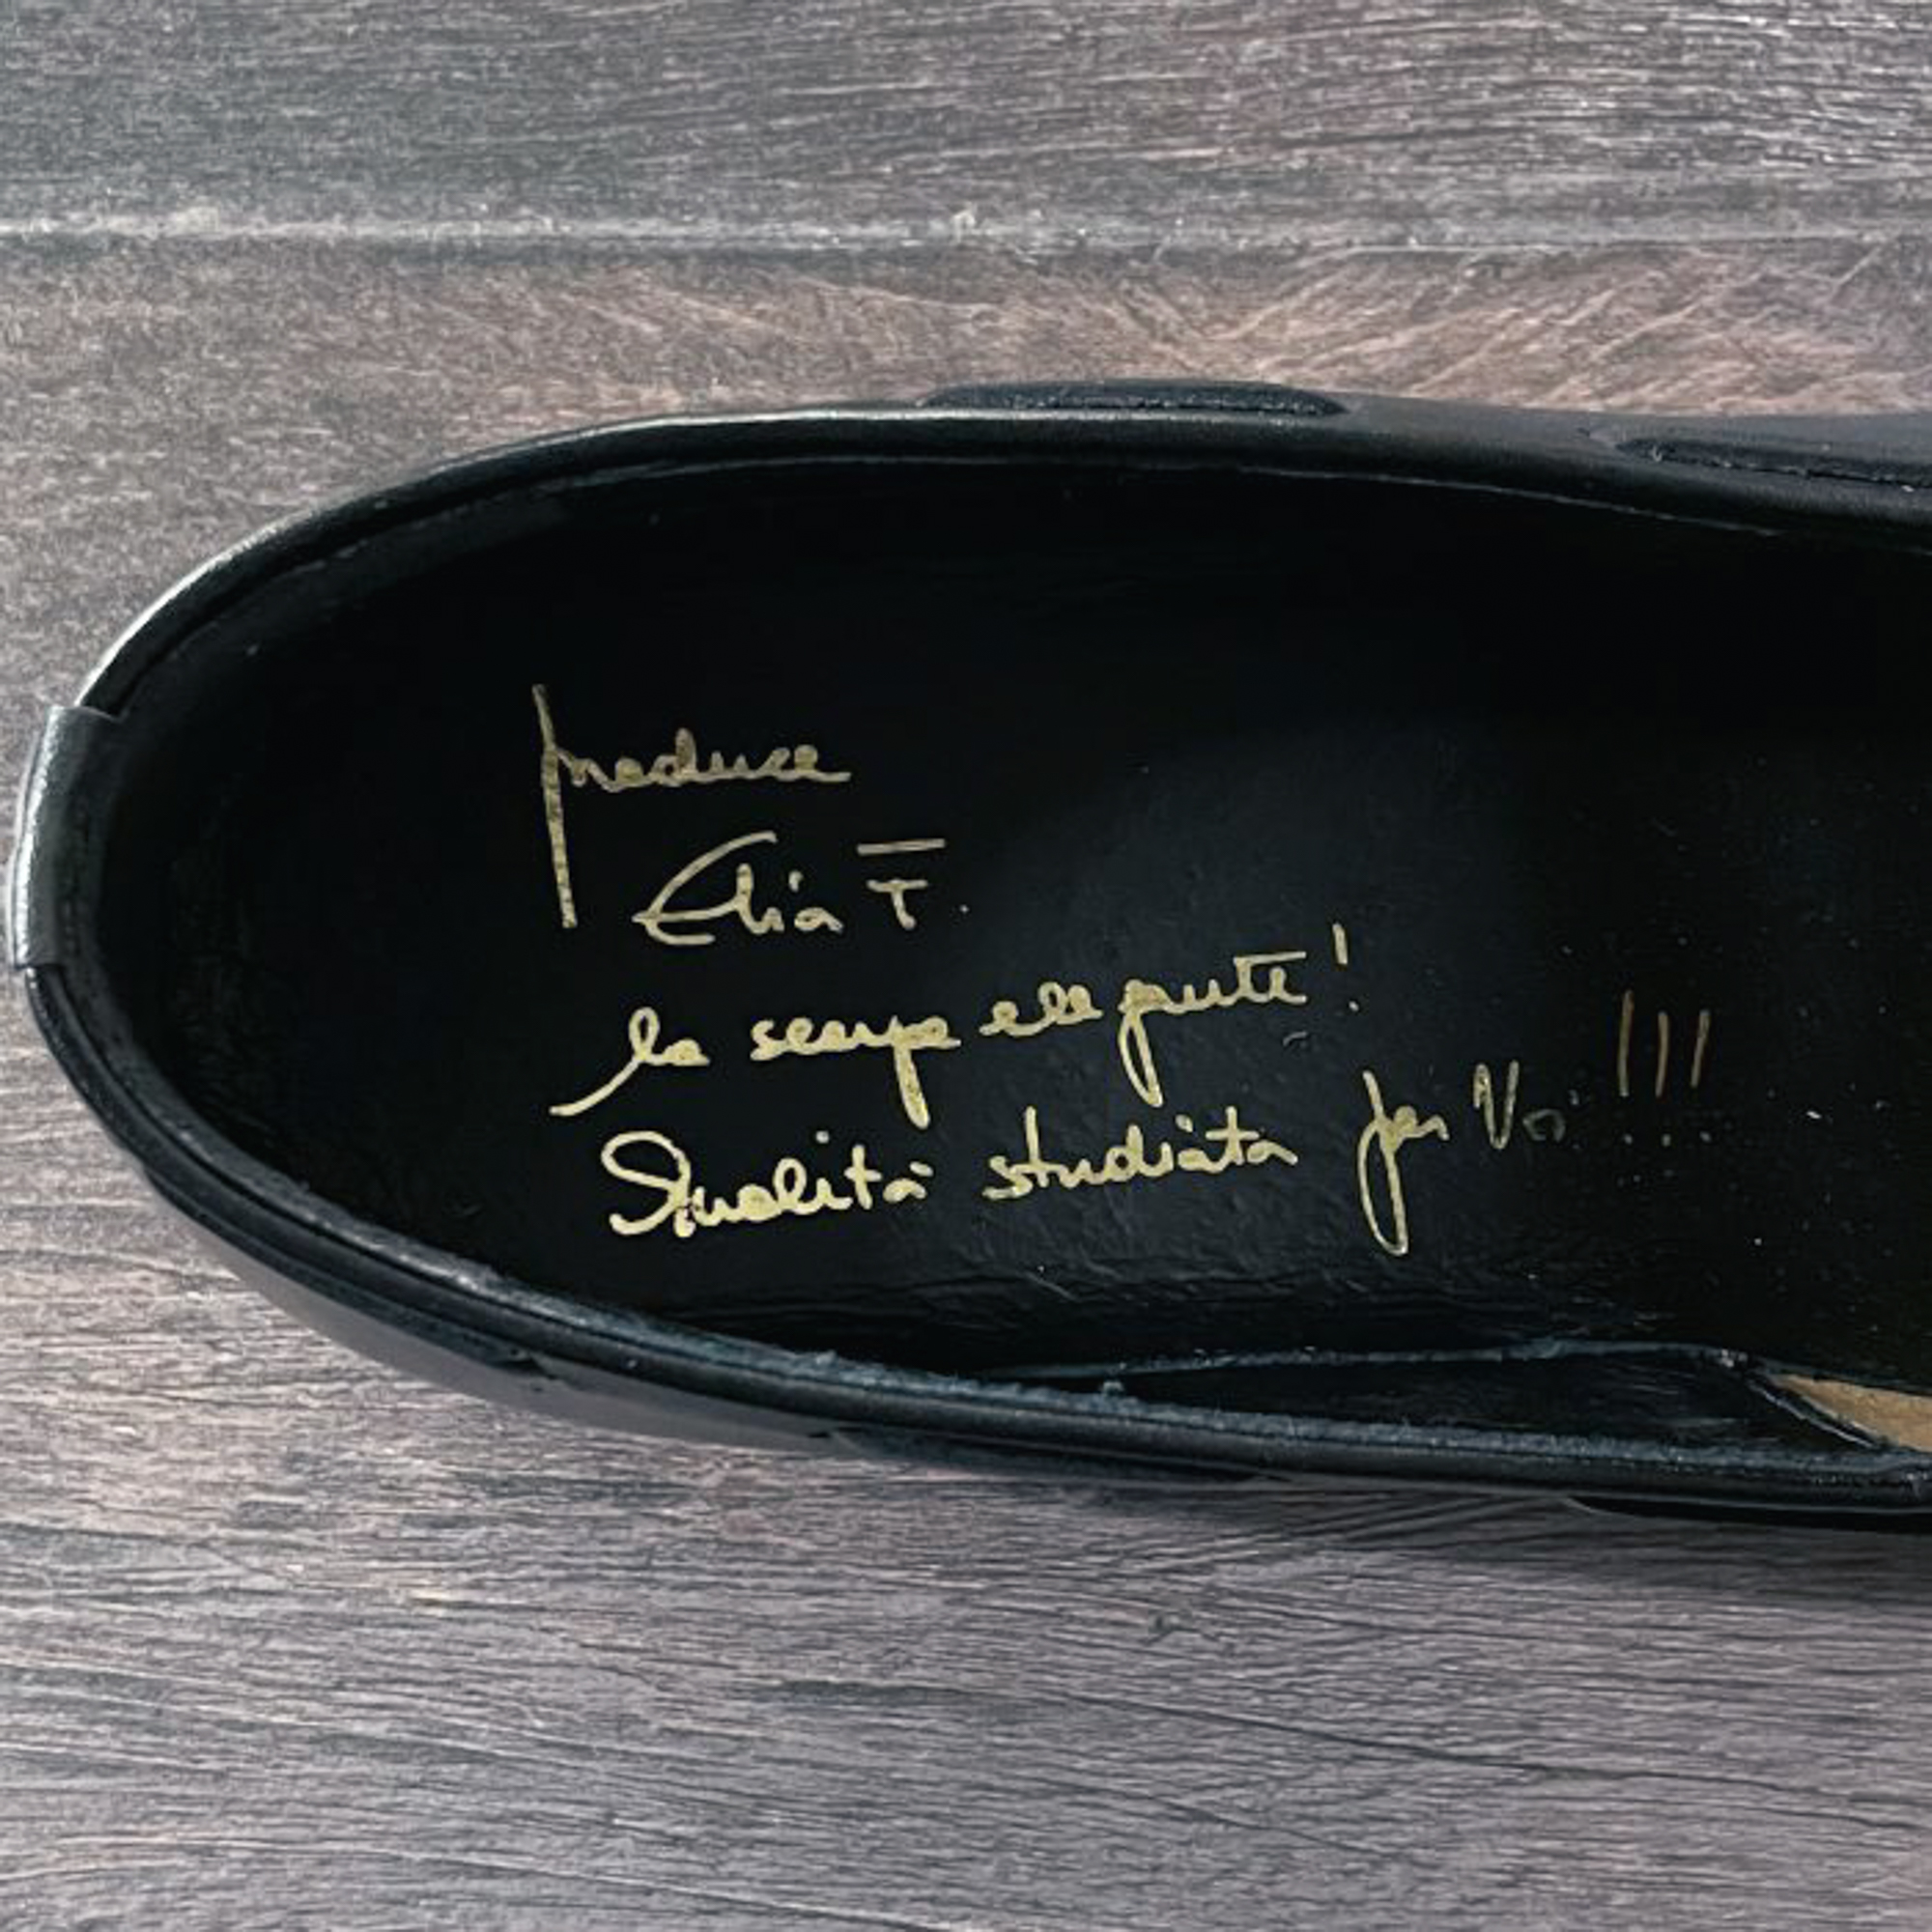 produce
Elia T.
la scarpa elegante!
Qualità studiata per Voi !!!